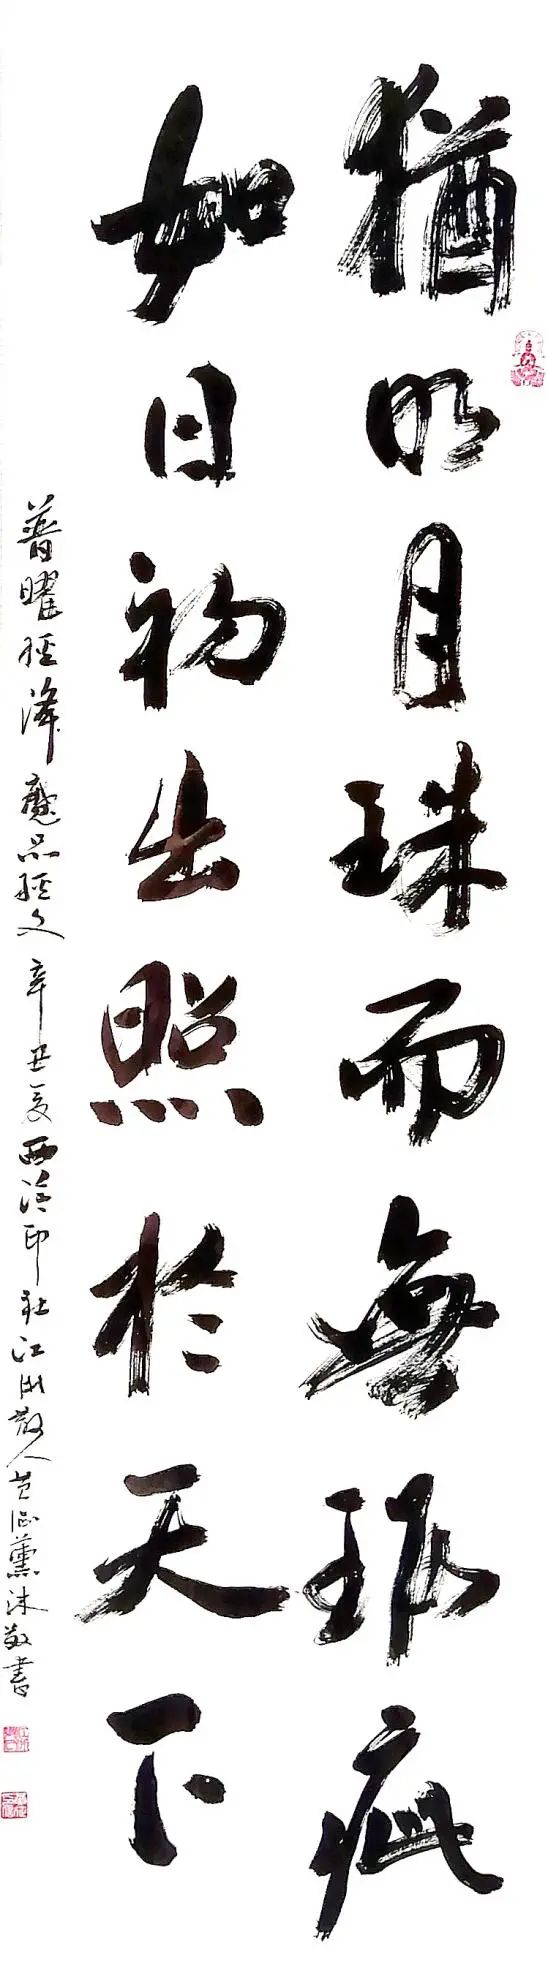 猶明月珠而無瑕疵
如日初出照於天下
普曜經降魔品經文 辛丑夏西泠印社江湖散人 薰沐敬書